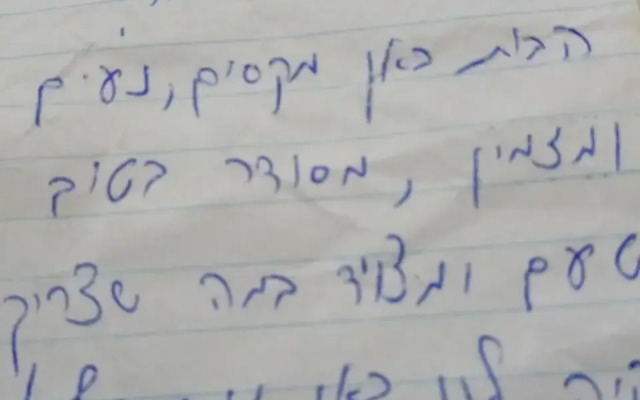 הבית כאן מקסים, נעים
ומזמין, מסודר בטוב
טעם ומצויד במה שצריך
לנו כאן